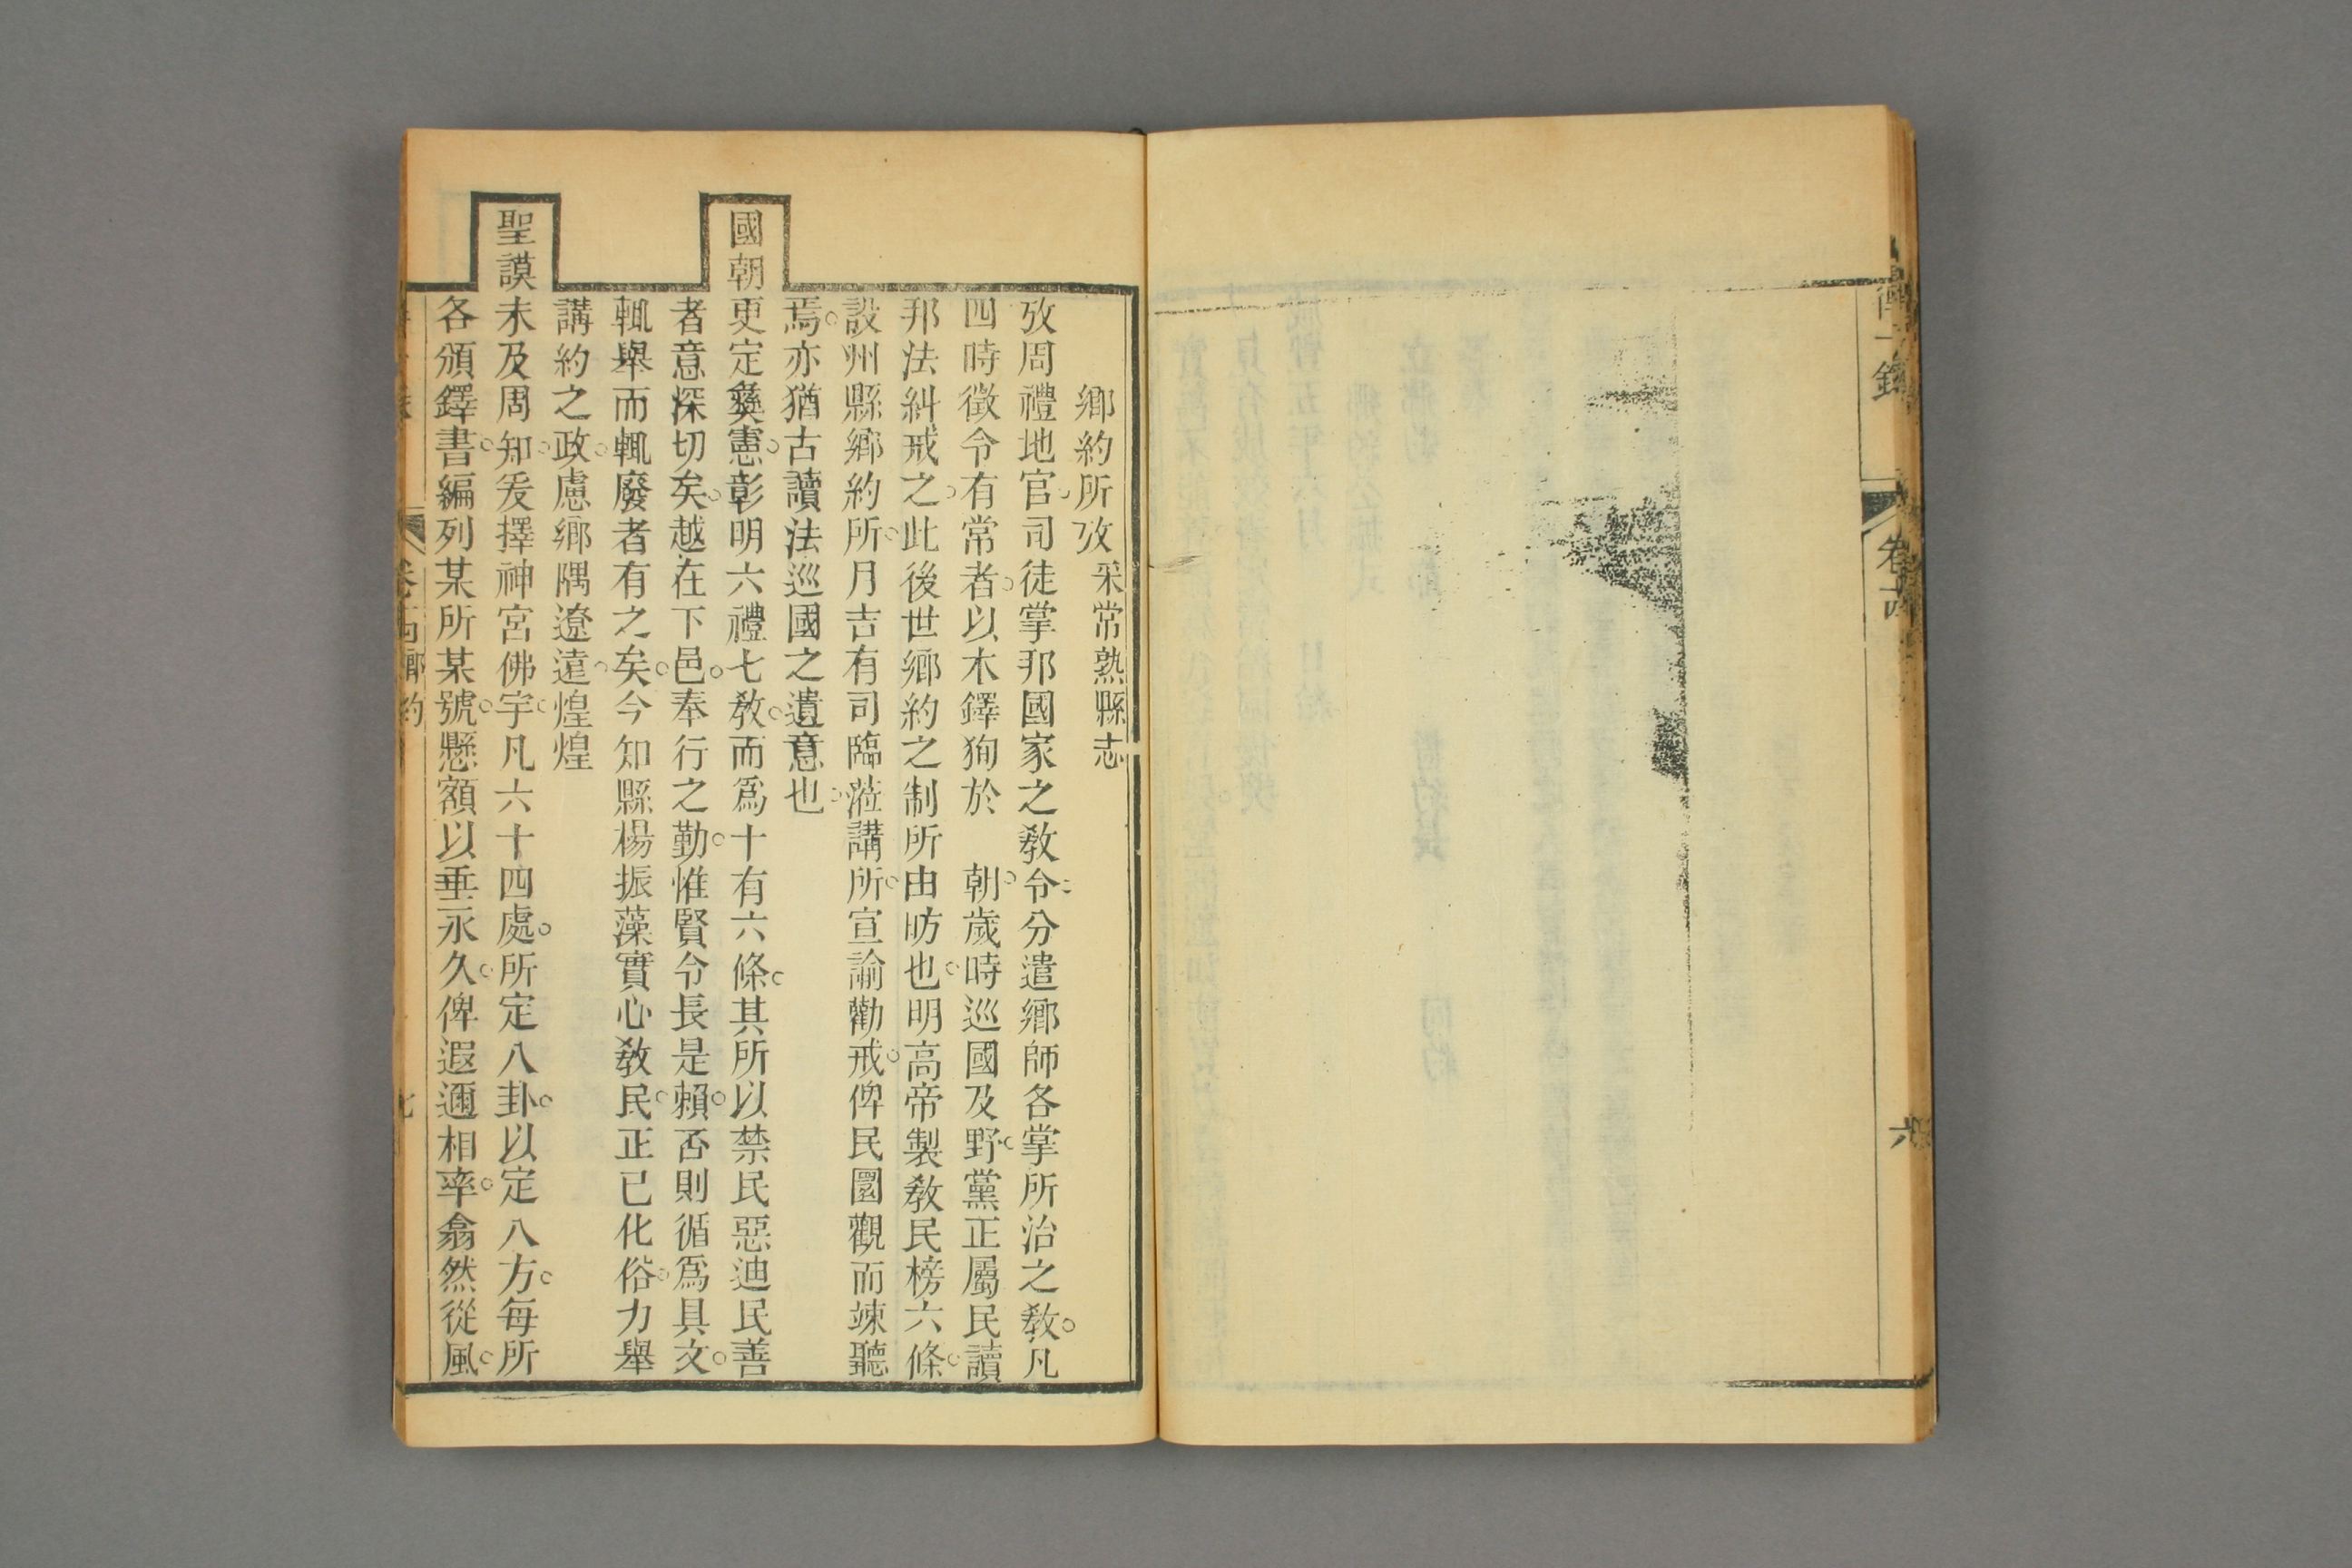 卷
六
鄉約所攷 采常熟縣志
攷周禮地官司徒掌邦國家之敎令分遣鄉師各掌所治之敎凡
四時徵令有常者以木鐸狥於 朝歲時巡國及野黨正屬民讀
邦法糾戒之此後世鄉約之制所由昉也明高帝製敎民榜六條
設州縣鄉約所月吉有司臨蒞講所宣諭勸戒俾民圜觀而竦聽
焉亦猶古讀法巡國之遺意也
國朝更定彝憲彰明六禮七敎而爲十有六條其所以禁民惡迪民善
者意深切矣越在下邑奉行之勤惟賢令長是賴否則循爲具文
輒舉而輒廢者有之矣今知縣楊振藻實心敎民正已化俗力舉
講約之政慮鄉隅遼遠煌煌
聖謨未及周知爰擇神宮佛宇凡六十四處所定八卦以定八方每所
各頒鐸書編列某所某號懸額以垂永久俾遐邇相率翕然從風